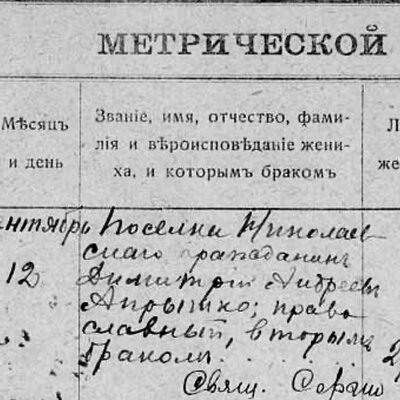 МЕТРИЧЕСКОЙ
Мѣсяцъ
и день
Званіе, имя, отчество, фами-
лія и вѣроисповѣданіе жени-
ха, и которымъ бракомъ
Л
же
ентябрь
12
Поселка Николаев
скаго гражданинъ
Димитрій Андреевъ
православный, вторымъ
бракомъ.
Свящ. Сергій